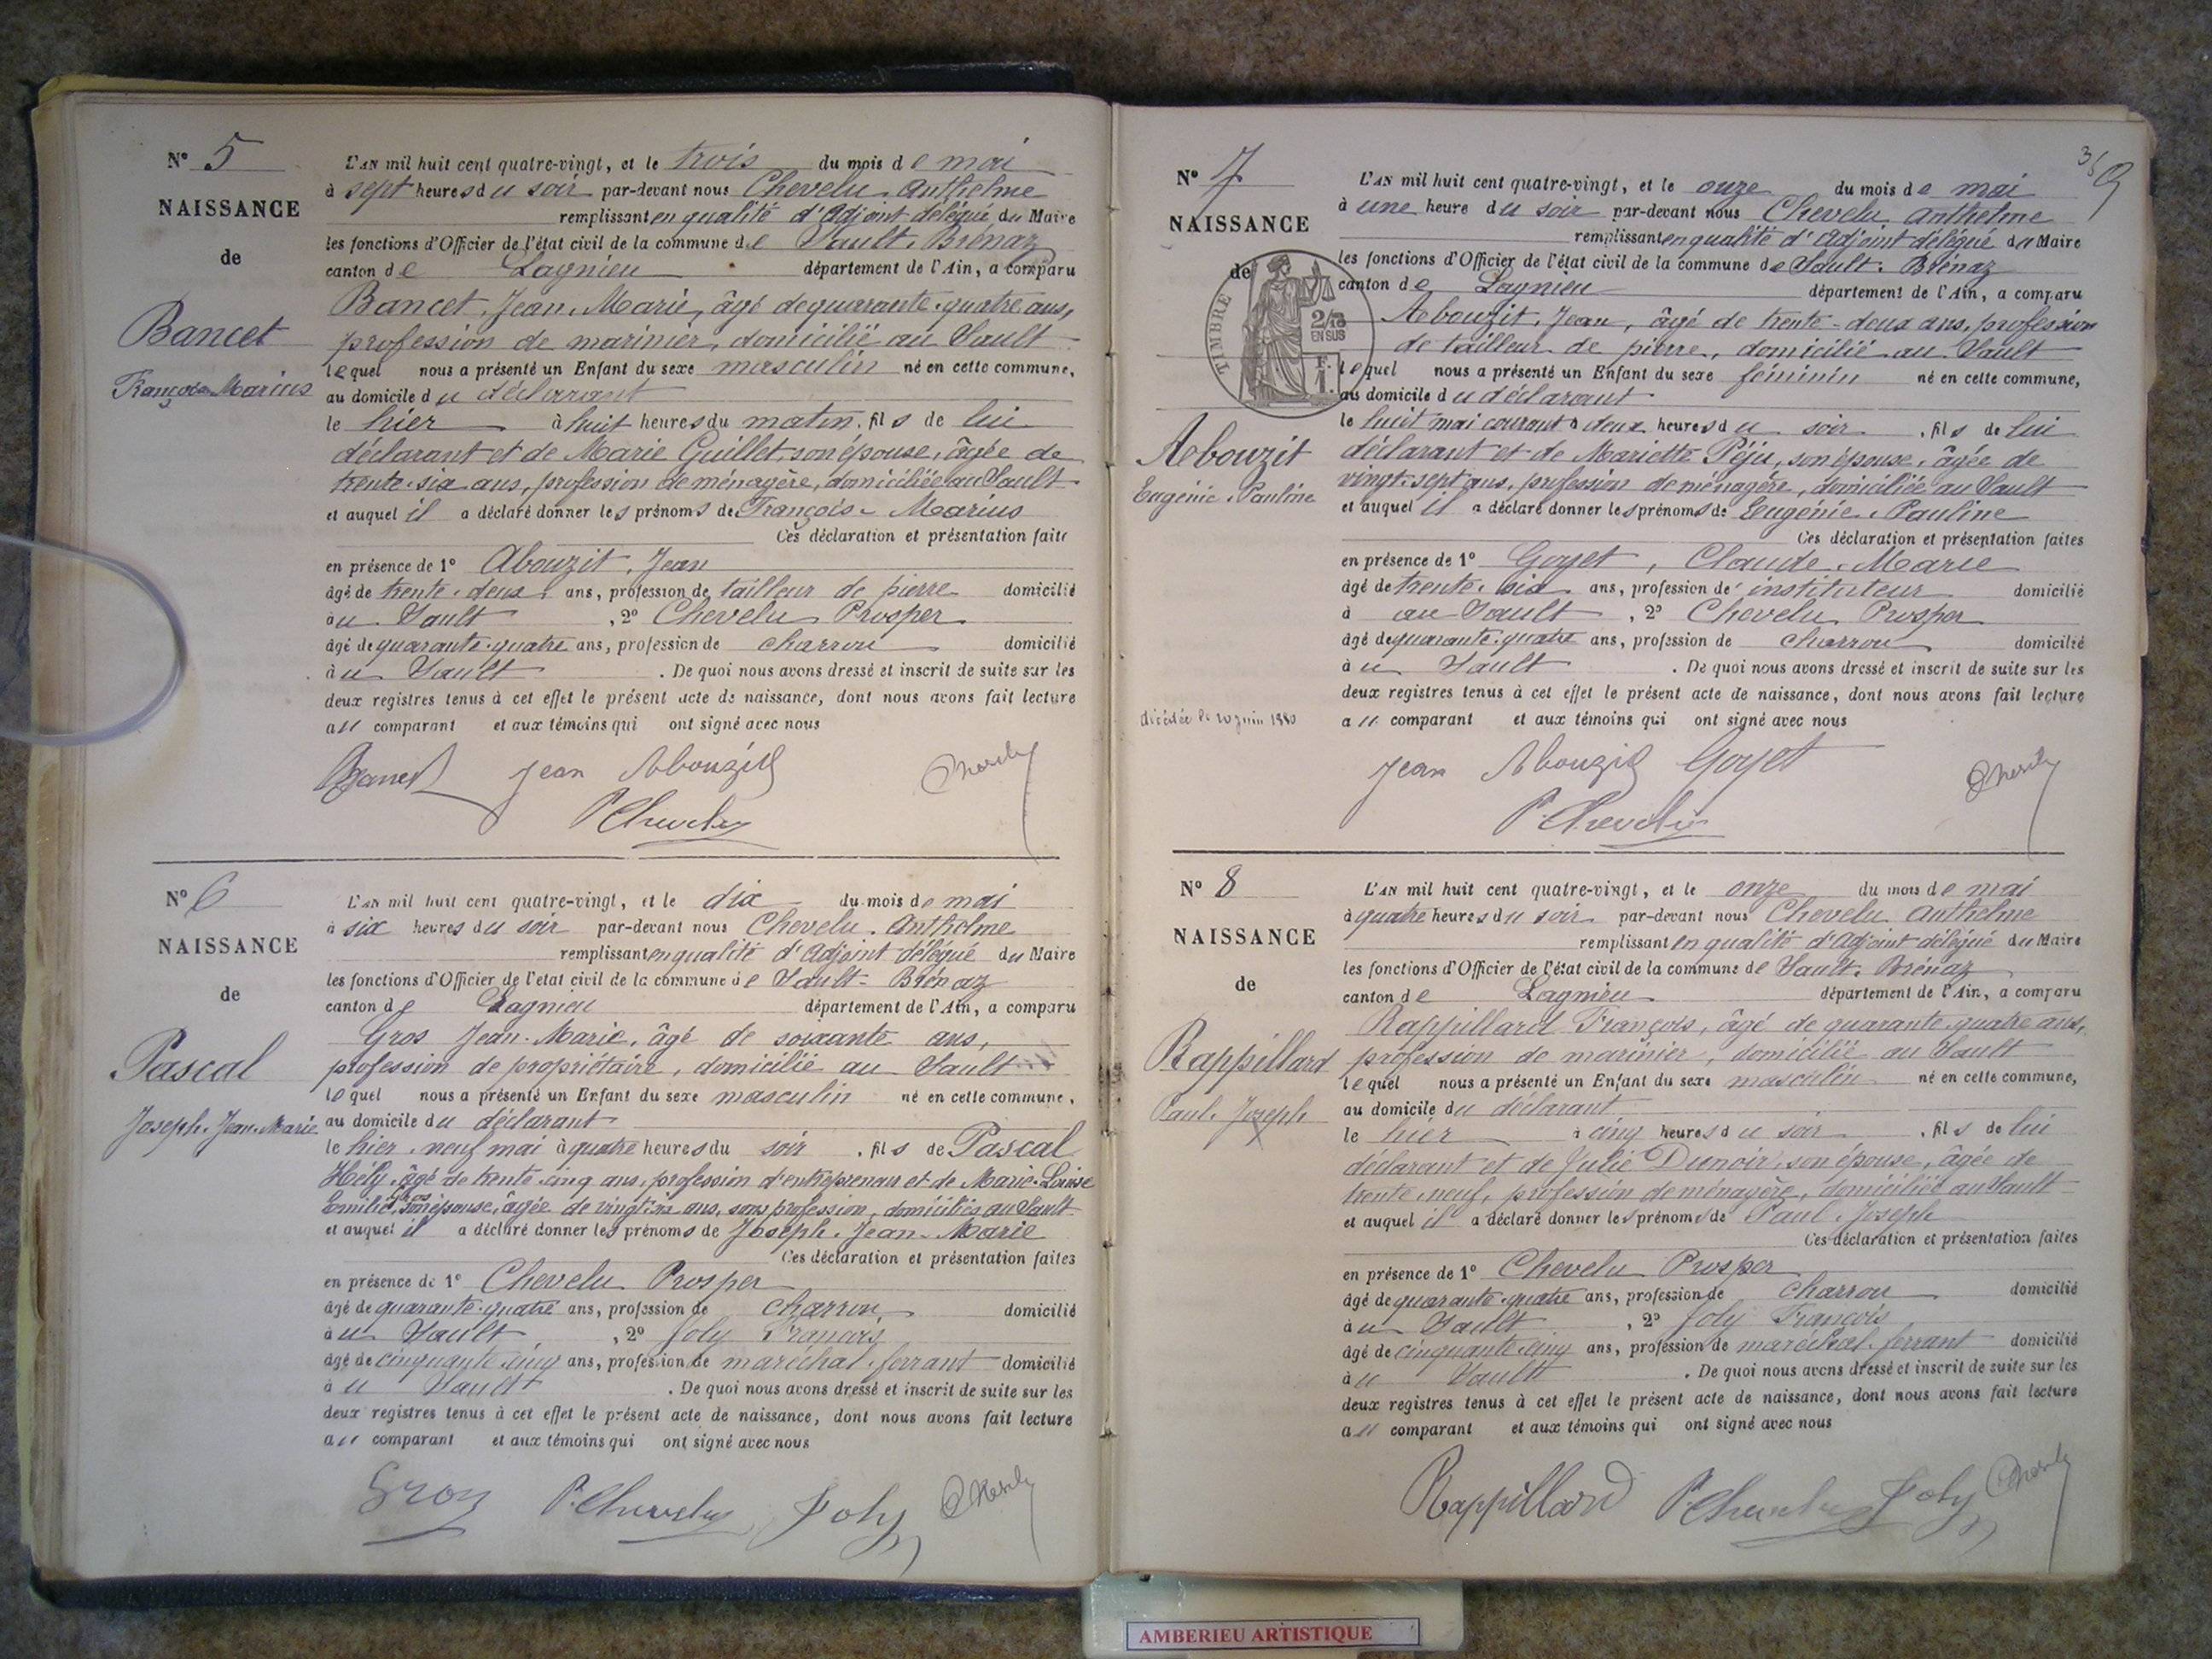 N° 5
NAISSANCE
de
Bancet
François-Marius
L'AN mil huit cent quatre-vingt, et le trois du mois de mai
à sept heures du soir par-devant nous Chevelu Anthelme
remplissant en qualité d'Adjoint délégué du Maire
les fonctions d'Officier de l'état civil de la commune de Sault-Brénaz
canton de Lagnieu département de l'Ain, a comparu
Bancet, Jean-Marie, âgé de quarante-quatre ans,
profession de marinier, domicilié au Sault
lequel nous a présenté un Enfant du sexe masculin né en cette commune,
au domicile du déclarant
le hier à huit heures du matin, fils de lui
déclarant et de Marie Guillet, son épouse, âgée de
trente-six ans, profession de ménagère, domiciliée au Sault
et auquel il a déclaré donner les prénoms de François-Marius
Ces déclaration et présentation faite
en présence de 1° Abouzit, Jean
âgé de trente-deux ans, profession de tailleur de pierre domicilié
au Sault, 2° Chevelu Prosper
âgé de quarante-quatre ans, profession de charron domicilié
au Sault. De quoi nous avons dressé et inscrit de suite sur les
deux registres tenus à cet effet le présent acte de naissance, dont nous avons fait lecture
au comparant et aux témoins qui ont signé avec nous
Bancet Jean Abouzit
P. Chevelu
N° 6
NAISSANCE
de
Pascal
Joseph-Jean-Marie
L'AN mil huit cent quatre-vingt, et le dix du mois de mai
à six heures du soir par-devant nous Chevelu Anthelme
remplissant en qualité d'Adjoint délégué du Maire
les fonctions d'Officier de l'état civil de la commune de Sault-Brénaz
canton de Lagnieu département de l'Ain, a comparu
Gros Jean-Marie, âgé de soixante ans,
profession de propriétaire, domicilié au Sault
lequel nous a présenté un Enfant du sexe masculin né en cette commune,
au domicile du déclarant
le hier, neuf mai à quatre heures du soir, fils de Pascal
Hély, âgé de trente-cinq ans, profession d'entrepreneur et de Marie-Louise
Emilie Gros, son épouse, âgée de vingt-six ans, sans profession, domiciliés au Sault
et auquel il a déclaré donner les prénoms de Joseph-Jean-Marie
Ces déclaration et présentation faites
en présence de 1° Chevelu Prosper
âgé de quarante-quatre ans, profession de charron, domicilié
au Sault, 2° Joly François
âgé de cinquante-cinq ans, profession de maréchal-ferrant domicilié
au Sault. De quoi nous avons dressé et inscrit de suite sur les
deux registres tenus à cet effet le présent acte de naissance, dont nous avons fait lecture
au comparant et aux témoins qui ont signé avec nous
Gros P. Chevelu Joly
N° 7
NAISSANCE
de
TIMBRE
2/10
EN SUS
Abouzit
Eugénie-Pauline
décédée le 20 juin 1880
L'AN mil huit cent quatre-vingt, et le onze du mois de mai
à une heure du soir par-devant nous Chevelu Anthelme
remplissant en qualité d'Adjoint délégué du Maire
les fonctions d'Officier de l'état civil de la commune de Sault-Brénaz
canton de Lagnieu département de l'Ain, a comparu
Abouzit, Jean, âgé de trente-deux ans, profession
de tailleur de pierre, domicilié au Sault
lequel nous a présenté un Enfant du sexe féminin né en cette commune,
au domicile du déclarant
le huit mai courant à deux heures du soir, fils de lui
déclarant et de Mariette Péju, son épouse, âgée de
vingt-sept ans, profession de ménagère, domiciliée au Sault
et auquel il a déclaré donner les prénoms de Eugénie-Pauline
Ces déclaration et présentation faites
en présence de 1° Goyet, Claude-Marie
âgé de trente-six ans, profession de instituteur domicilié
à au Sault, 2° Chevelu Prosper
âgé de quarante-quatre ans, profession de charron domicilié
au Sault. De quoi nous avons dressé et inscrit de suite sur les
deux registres tenus à cet effet le présent acte de naissance, dont nous avons fait lecture
au comparant et aux témoins qui ont signé avec nous
Jean Abouzit Goyet
P. Chevelu
N° 8
NAISSANCE
de
Rappillard
Paul-Joseph
L'AN mil huit cent quatre-vingt, et le onze du mois de mai
à quatre heures du soir par-devant nous Chevelu Anthelme
remplissant en qualité d'Adjoint délégué du Maire
les fonctions d'Officier de l'état civil de la commune de Sault-Brénaz
canton de Lagnieu département de l'Ain, a comparu
Rappillard François, âgé de quarante-quatre ans,
profession de marinier, domicilié au Sault
lequel nous a présenté un Enfant du sexe masculin né en cette commune,
au domicile du déclarant
le hier à cinq heures du soir, fils de lui
déclarant et de Julie Dunoir, son épouse, âgée de
trente-neuf, profession de ménagère, domiciliée au Sault
et auquel il a déclaré donner les prénoms de Paul-Joseph
Ces déclaration et présentation faites
en présence de 1° Chevelu Prosper
âgé de quarante-quatre ans, profession de charron domicilié
au Sault, 2° Joly François
âgé de cinquante-cinq ans, profession de maréchal-ferrant domicilié
au Sault. De quoi nous avons dressé et inscrit de suite sur les
deux registres tenus à cet effet le présent acte de naissance, dont nous avons fait lecture
au comparant et aux témoins qui ont signé avec nous
Rappillard P. Chevelu Joly
AMBERIEU ARTISTIQUE